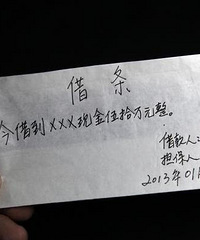 借条
今借到XXX现金伍拾万元整。
借款人:
担保人
2013年01